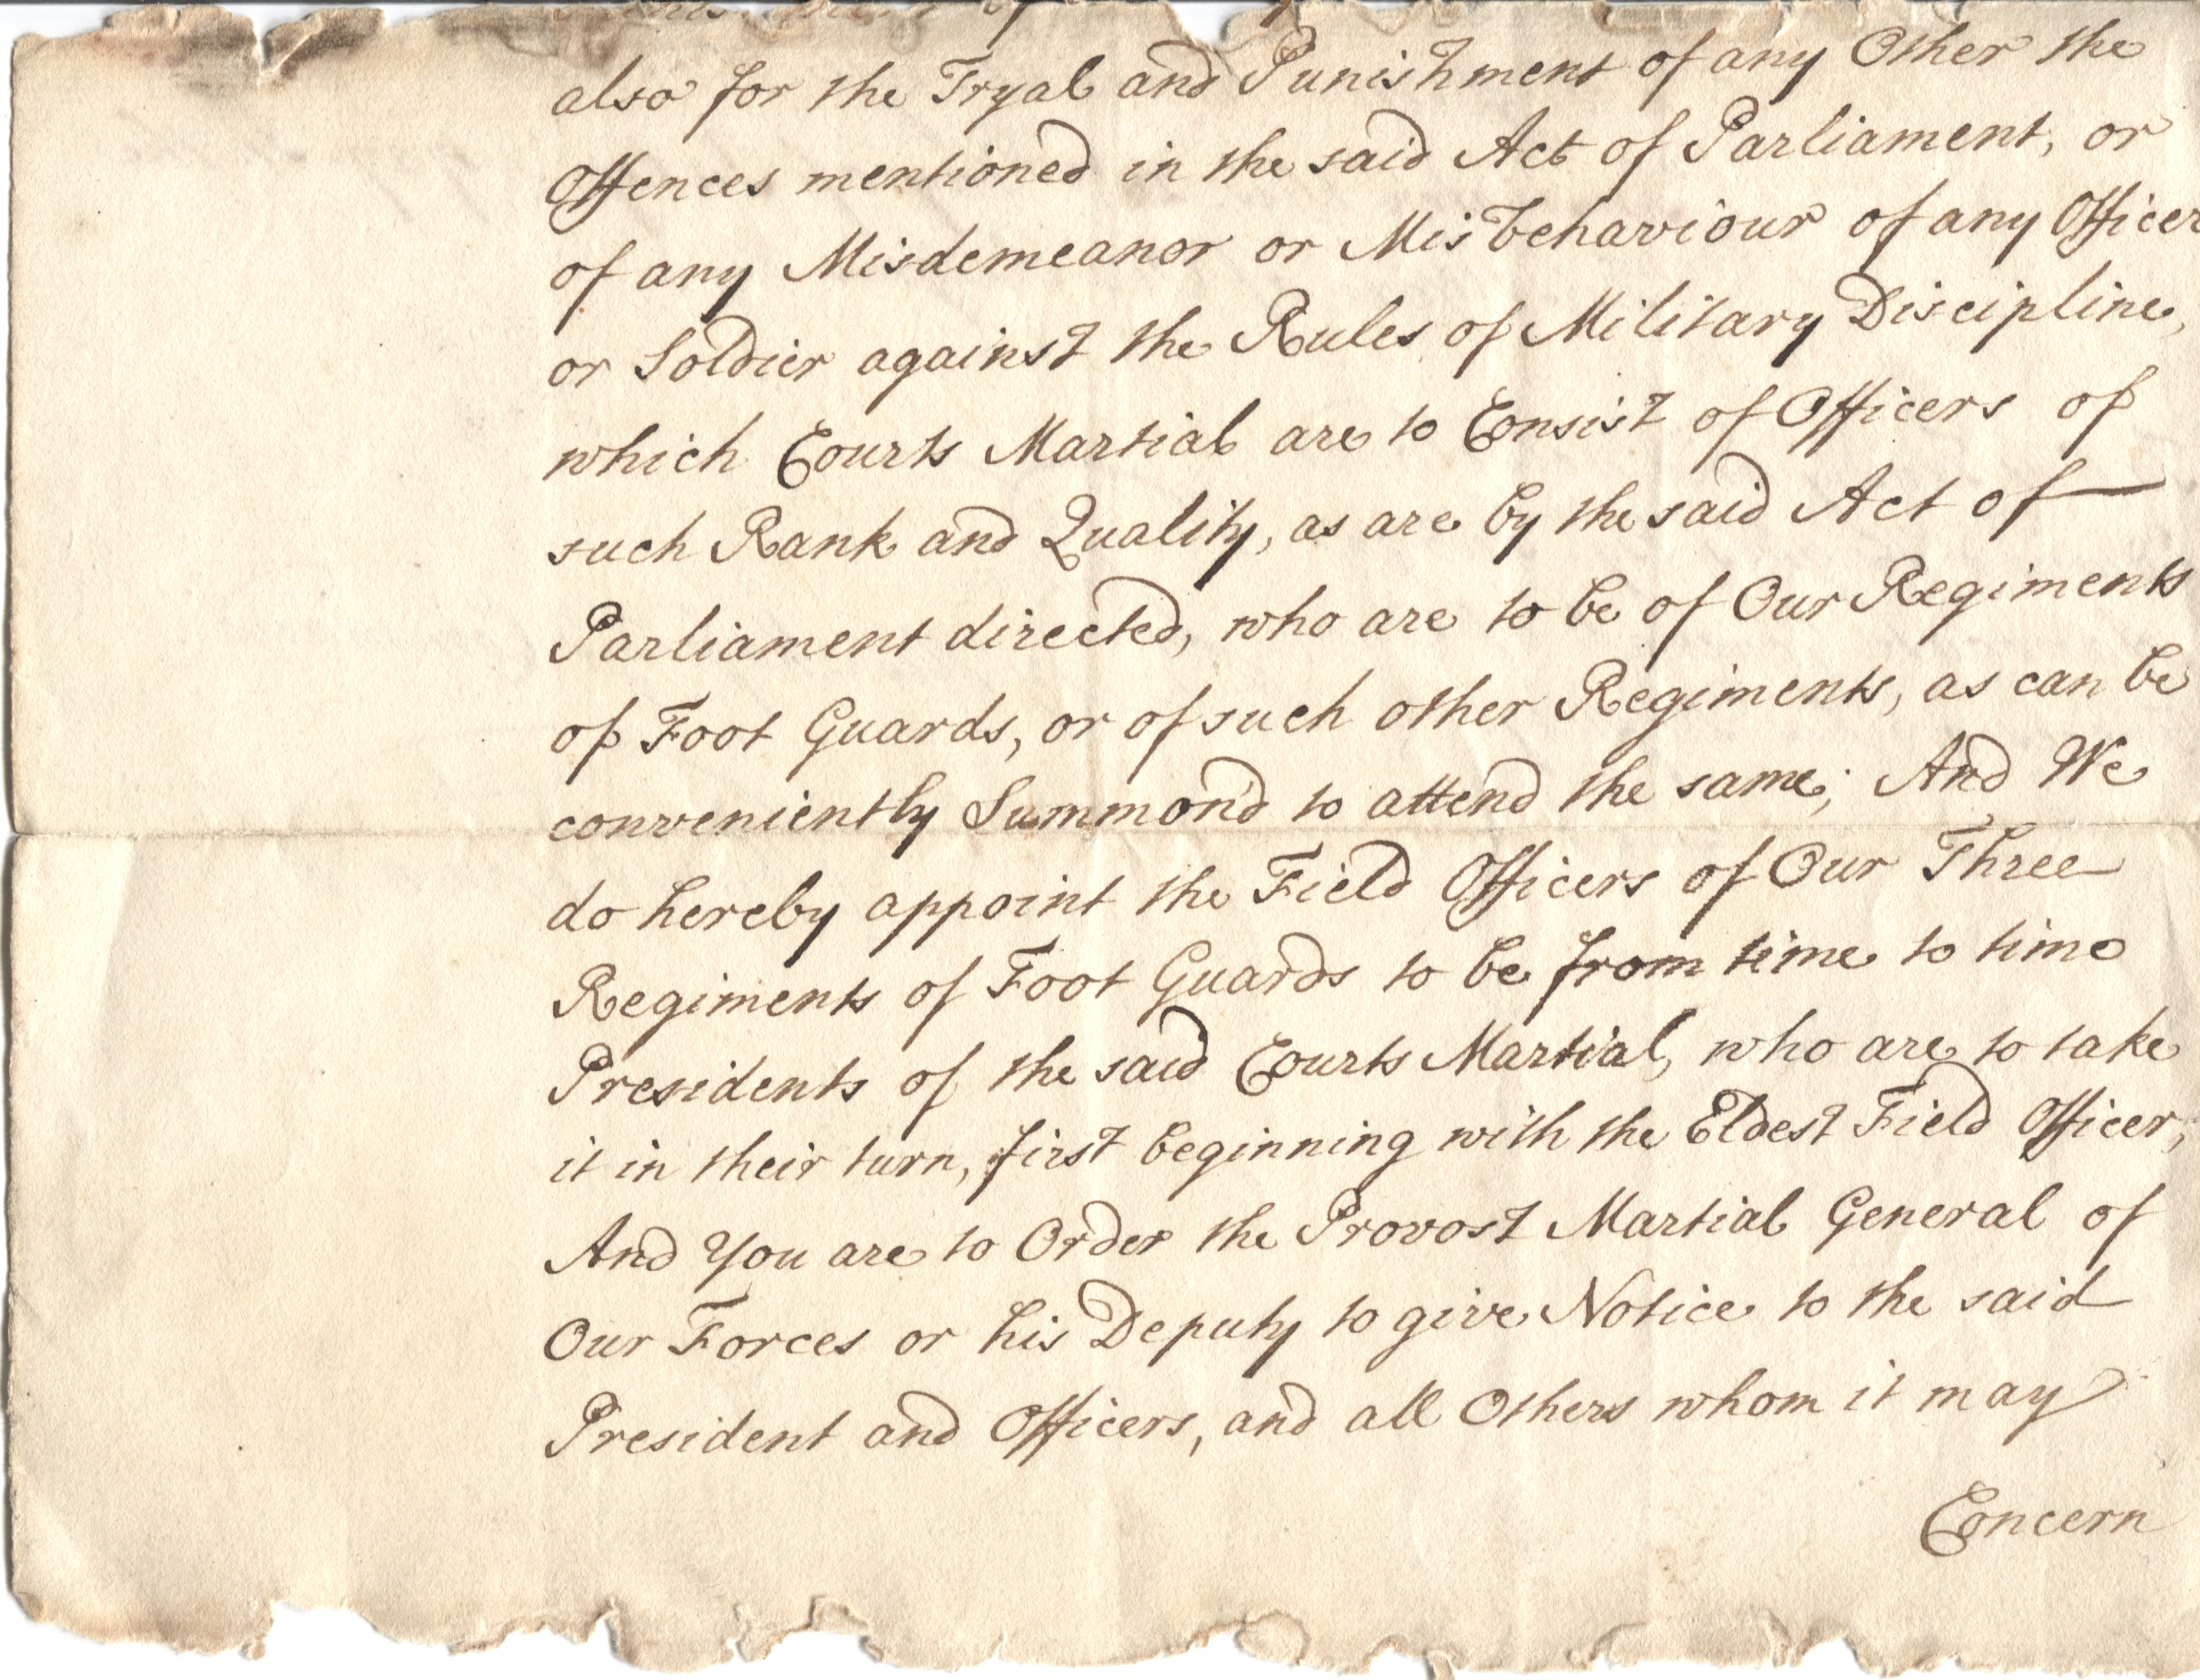 also for the Tryal and Punishment of any Other the
Offences mentioned in the said Act of Parliament, or
of any Misdemeanor or Misbehaviour of any Officer
or Soldier against the Rules of Military Discipline,
which Courts Martial are to Consist of Officers of
such Rank and Quality, as are by the said Act of
Parliament directed, who are to be of Our Regiments
of Foot Guards, or of such other Regiments, as can be
conveniently Summon'd to attend the same; And We
do hereby appoint the Field Officers of Our Three
Regiments of Foot Guards to be from time to time
Presidents of the said Courts Martial, who are to take
it in their turn, first beginning with the Eldest Field Officer;
And You are to Order the Provost Martial General of
Our Forces or his Deputy to give Notice to the said
President and Officers, and all Others whom it may
Concern